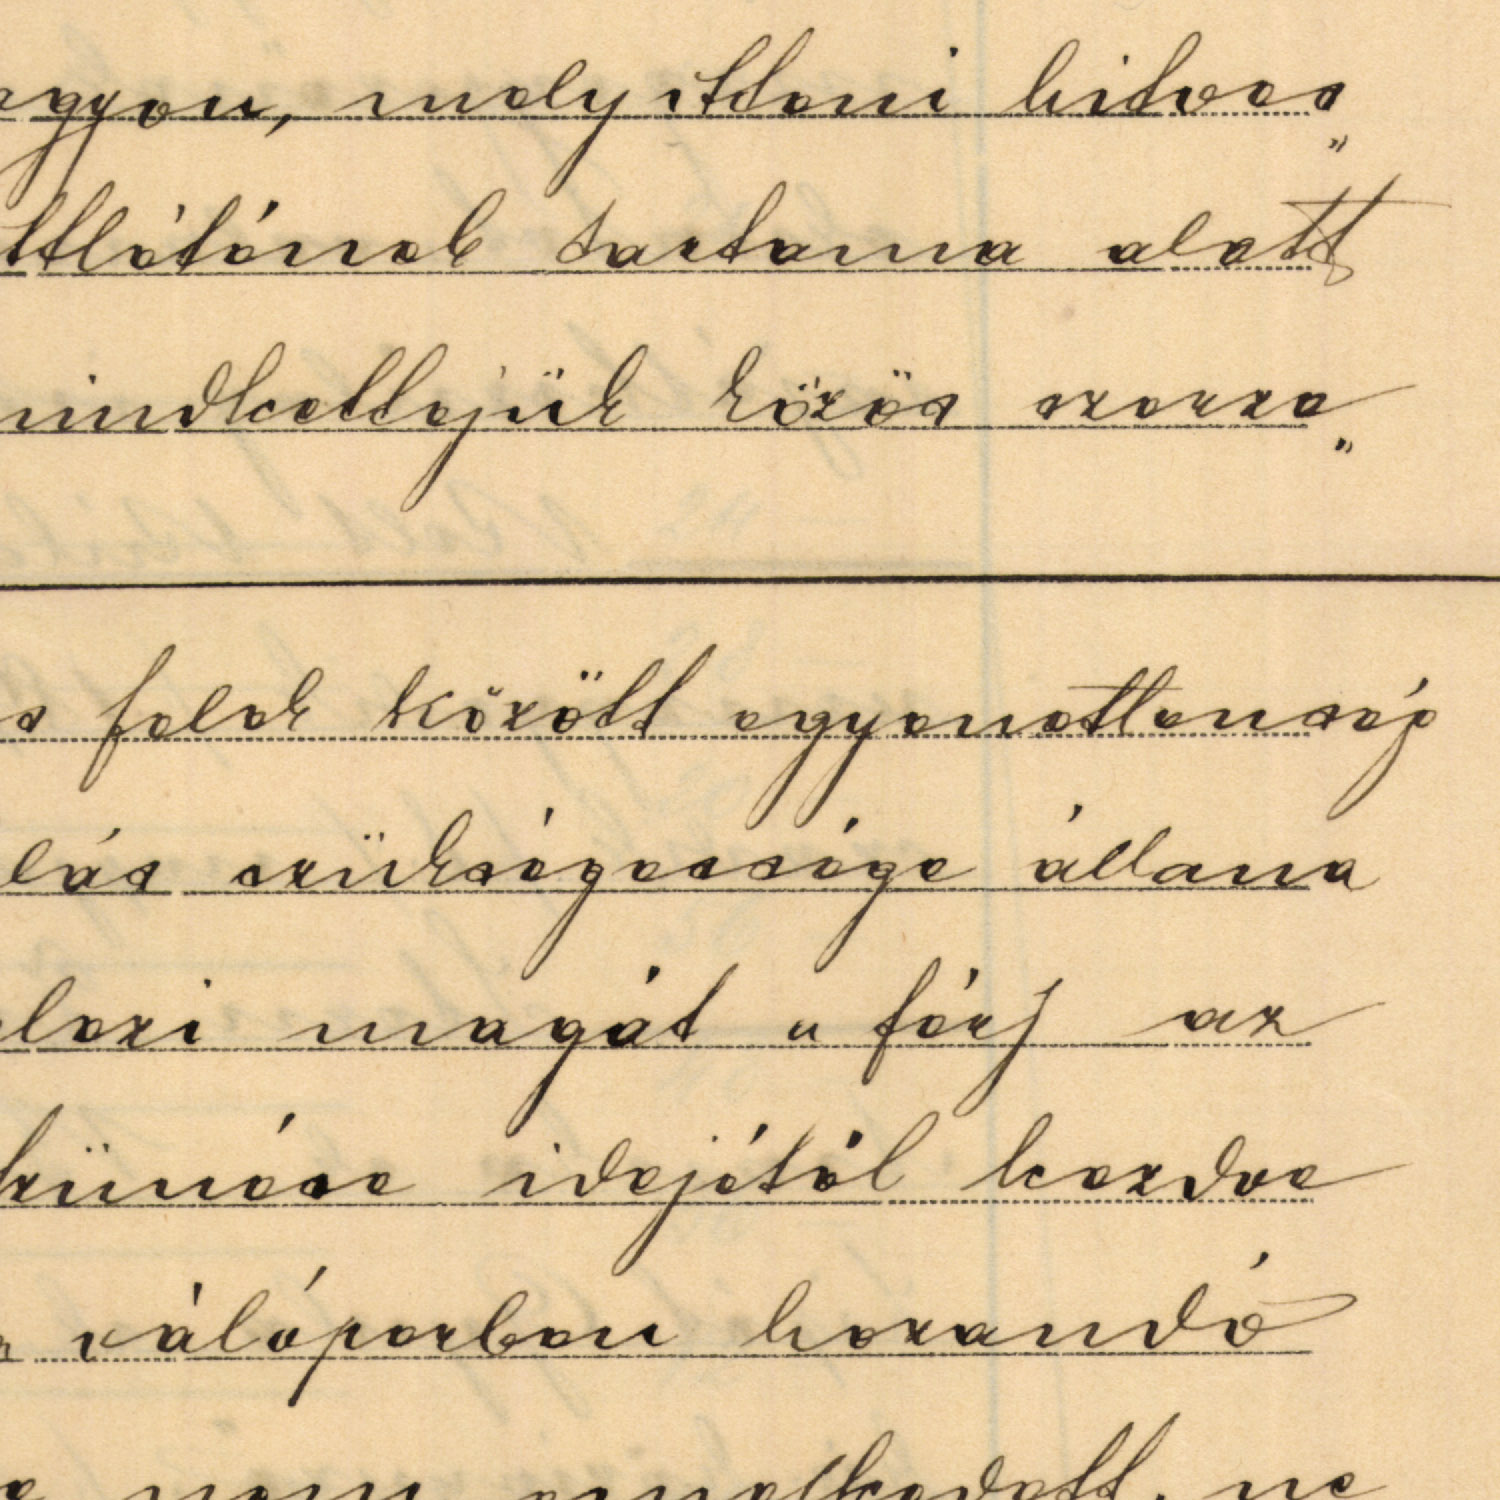 agyon, mely itteni hitves„
ttlétének tartama alatt
mindkettejük közös szerze„
s felek között egyenetlenség
lás szükségessége állana
elezi magát a férj az
szünése idejétől kezdve
válóperben hozandó
nem emelkedett, ne